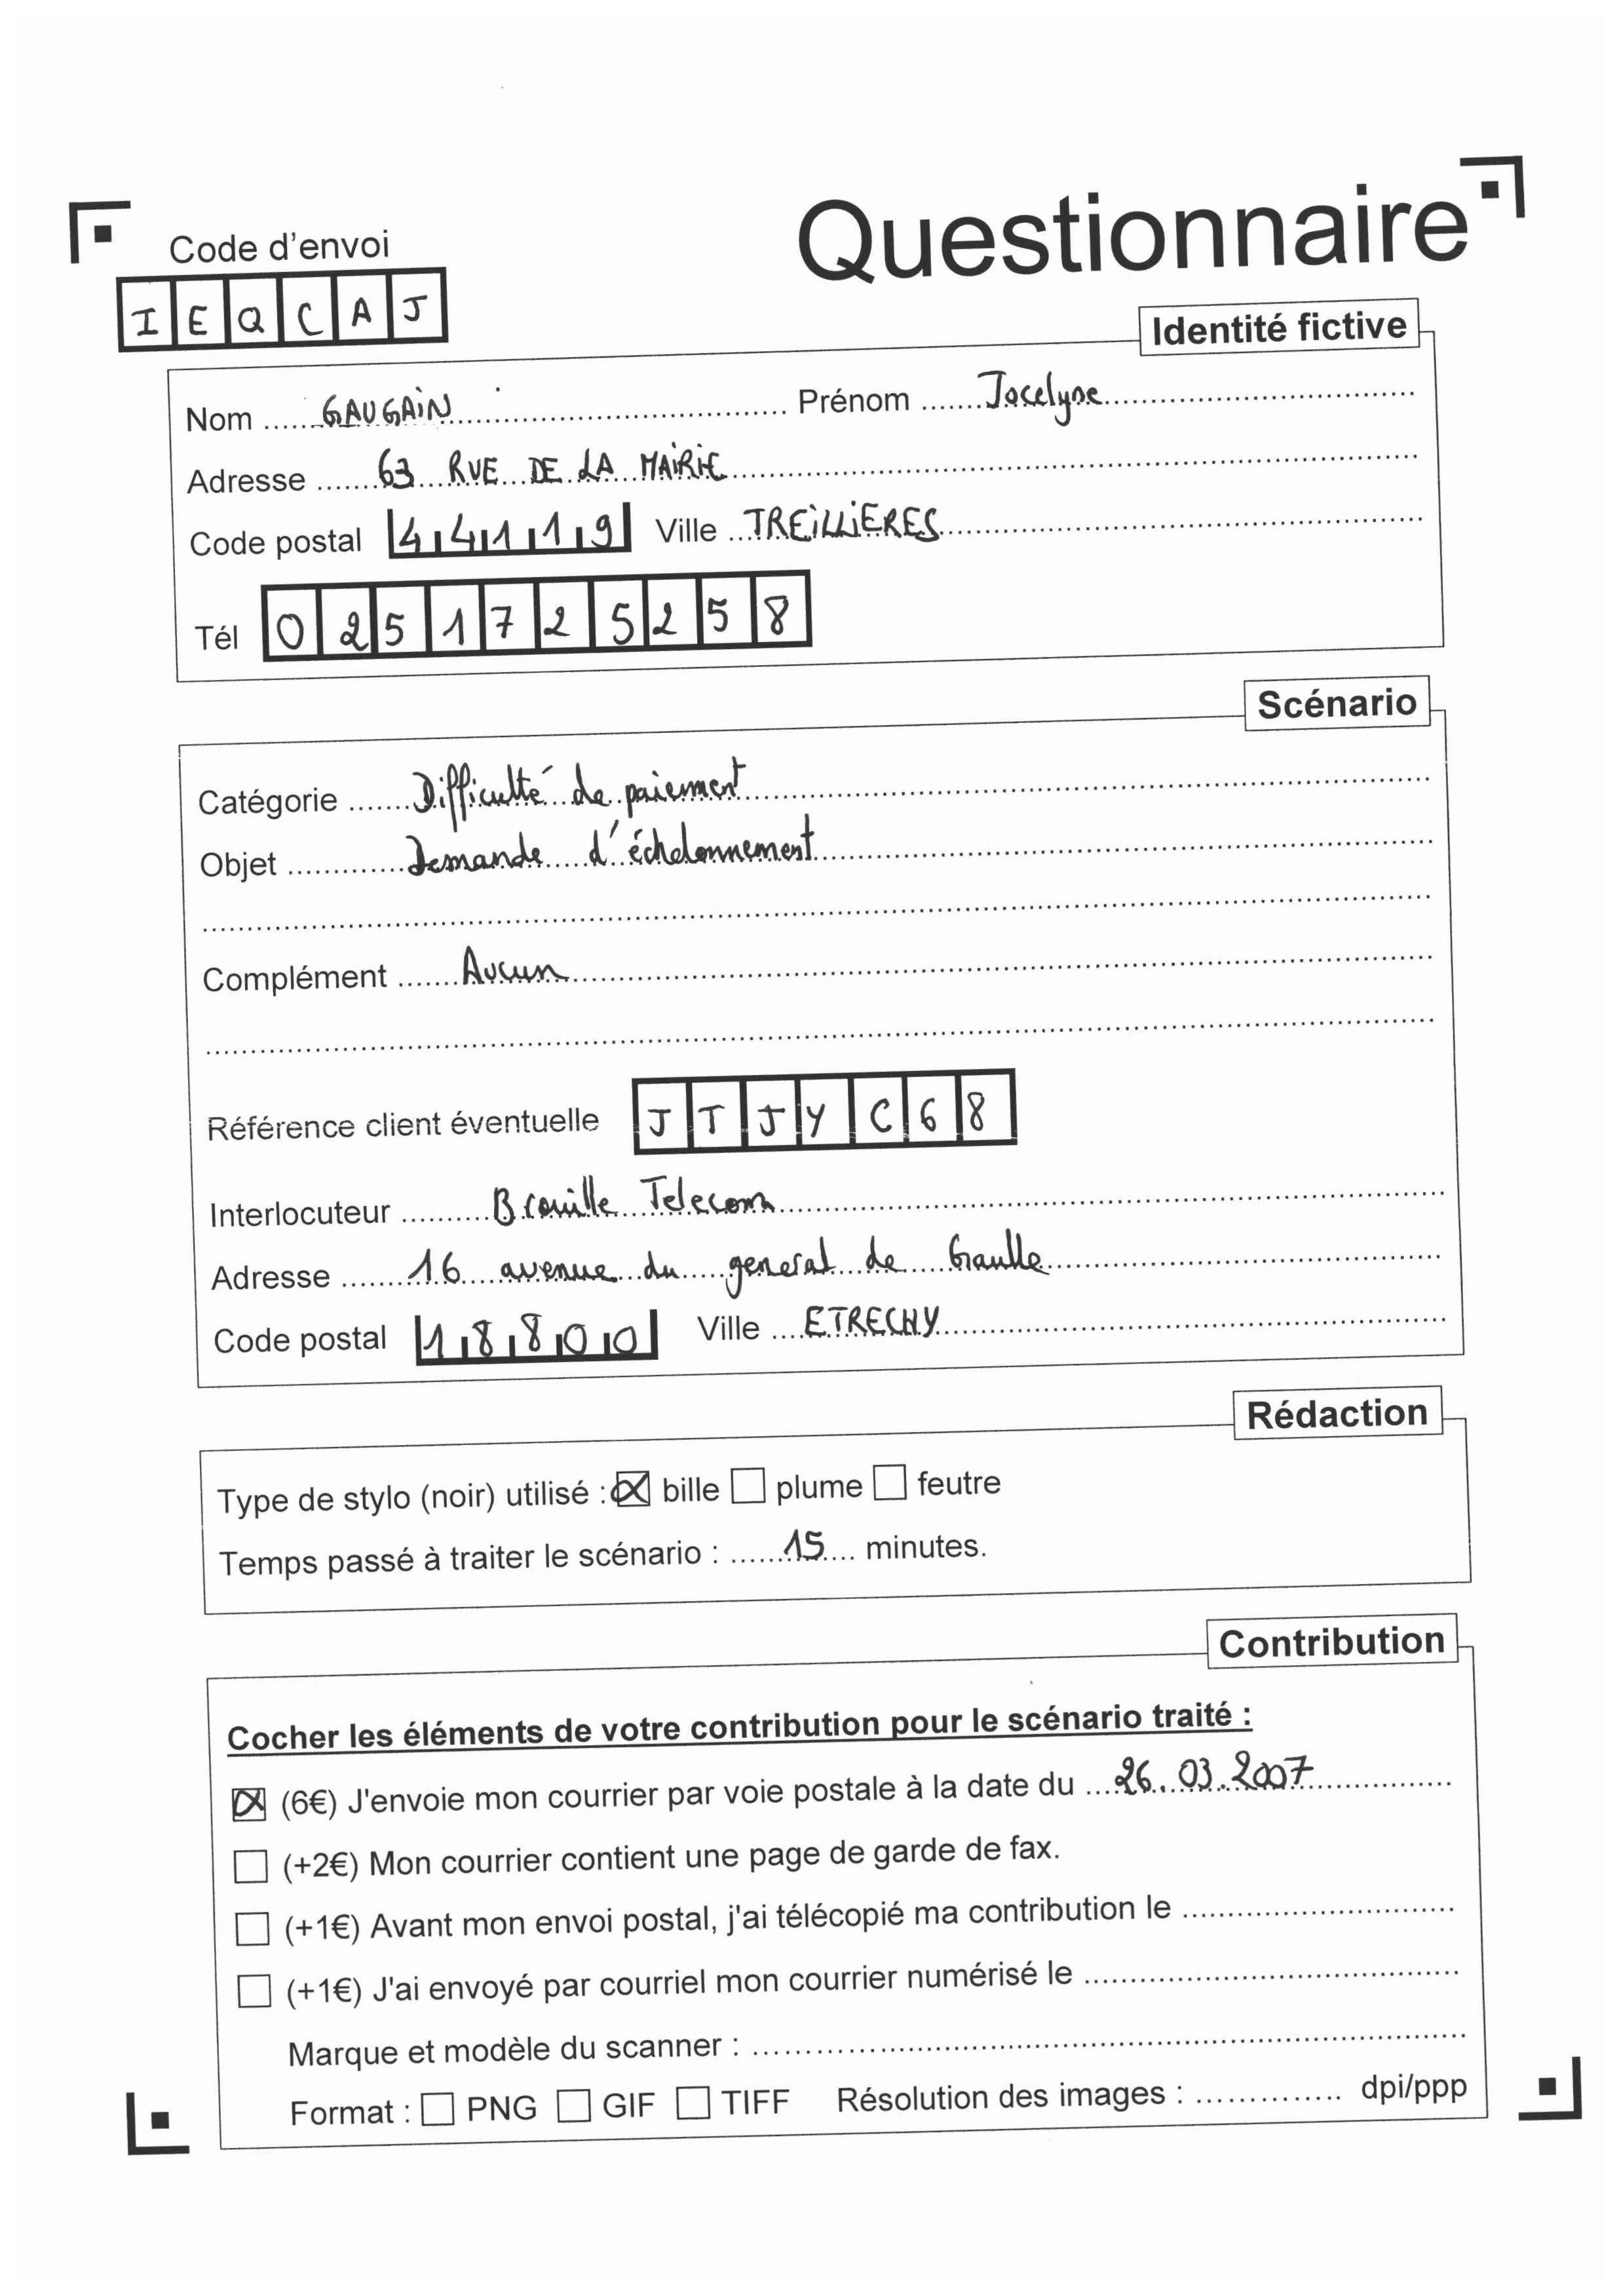 Questionnaire
Code d'envoi
IEQCAJ
Identité fictive
Nom GAUGAIN Prénom Jocelyne
Adresse 63 RUE DE LA MAIRIE
Code postal 44119 Ville TREILLIERES
Tél 0251725258
Scénario
Catégorie Difficulté de paiement
Objet Demande d'échelonnement
Complément Aucun
Référence client éventuelle JTJYC68
Interlocuteur Brouille Telecom
Adresse 16 avenue du general de Gaulle
Code postal 18800 Ville ETRECHY
Rédaction
Type de stylo (noir) utilisé : ☒ bille ☐ plume ☐ feutre
Temps passé à traiter le scénario : 15 minutes.
Contribution
Cocher les éléments de votre contribution pour le scénario traité :
☒ (6€) J'envoie mon courrier par voie postale à la date du 26.03.2007
☐ (+2€) Mon courrier contient une page de garde de fax.
☐ (+1€) Avant mon envoi postal, j'ai télécopié ma contribution le
☐ (+1€) J'ai envoyé par courriel mon courrier numérisé le
Marque et modèle du scanner :
Format : ☐ PNG ☐ GIF ☐ TIFF Résolution des images : dpi/ppp